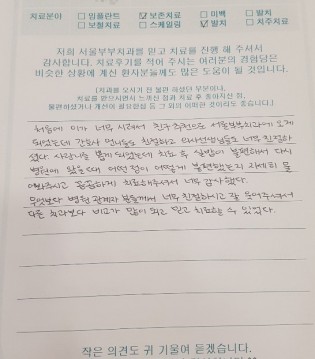 치료분야 □ 임플란트 ☑ 보존치료 □ 미백 □ 발치
□ 보철치료 □ 스케일링 ☑ 발치 □ 치주치료
저희 서울부부치과를 믿고 치료를 진행 해 주셔서
감사합니다. 치료후기를 적어 주시는 여러분의 경험담은
비슷한 상황에 계신 환자분들께도 많은 도움이 될 것입니다.
(치과를 오시기 전 불편 하셨던 부분이나,
치료를 받으시면서 느끼신 점과 치료 후 좋아지신 점,
불편하셨거나 개선이 필요했을 등 그 외 어떠한 것이라도 좋습니다.)
처음에 이가 너무 시려서 친구 추천으로 서울부부치과에 오게
되었는데 간호사 언니들도 친절하고 의사선생님들도 너무 친절하
셨다. 사랑니를 뽑게 되었는데 치료 후 실밥이 불편해서 다시
병원에 왔을때 어떤 점이 어떻게 불편했는지 자세히 물
어봐주시고 꼼꼼하게 치료해주셔서 너무 감사했다.
무엇보다 병원 관계자 분들께서 너무 친절하시고 잘 웃어주셔서
다른 치과보다 비교가 많이 되고 믿고 치료할 수 있었다.
작은 의견도 귀 기울여 듣겠습니다.